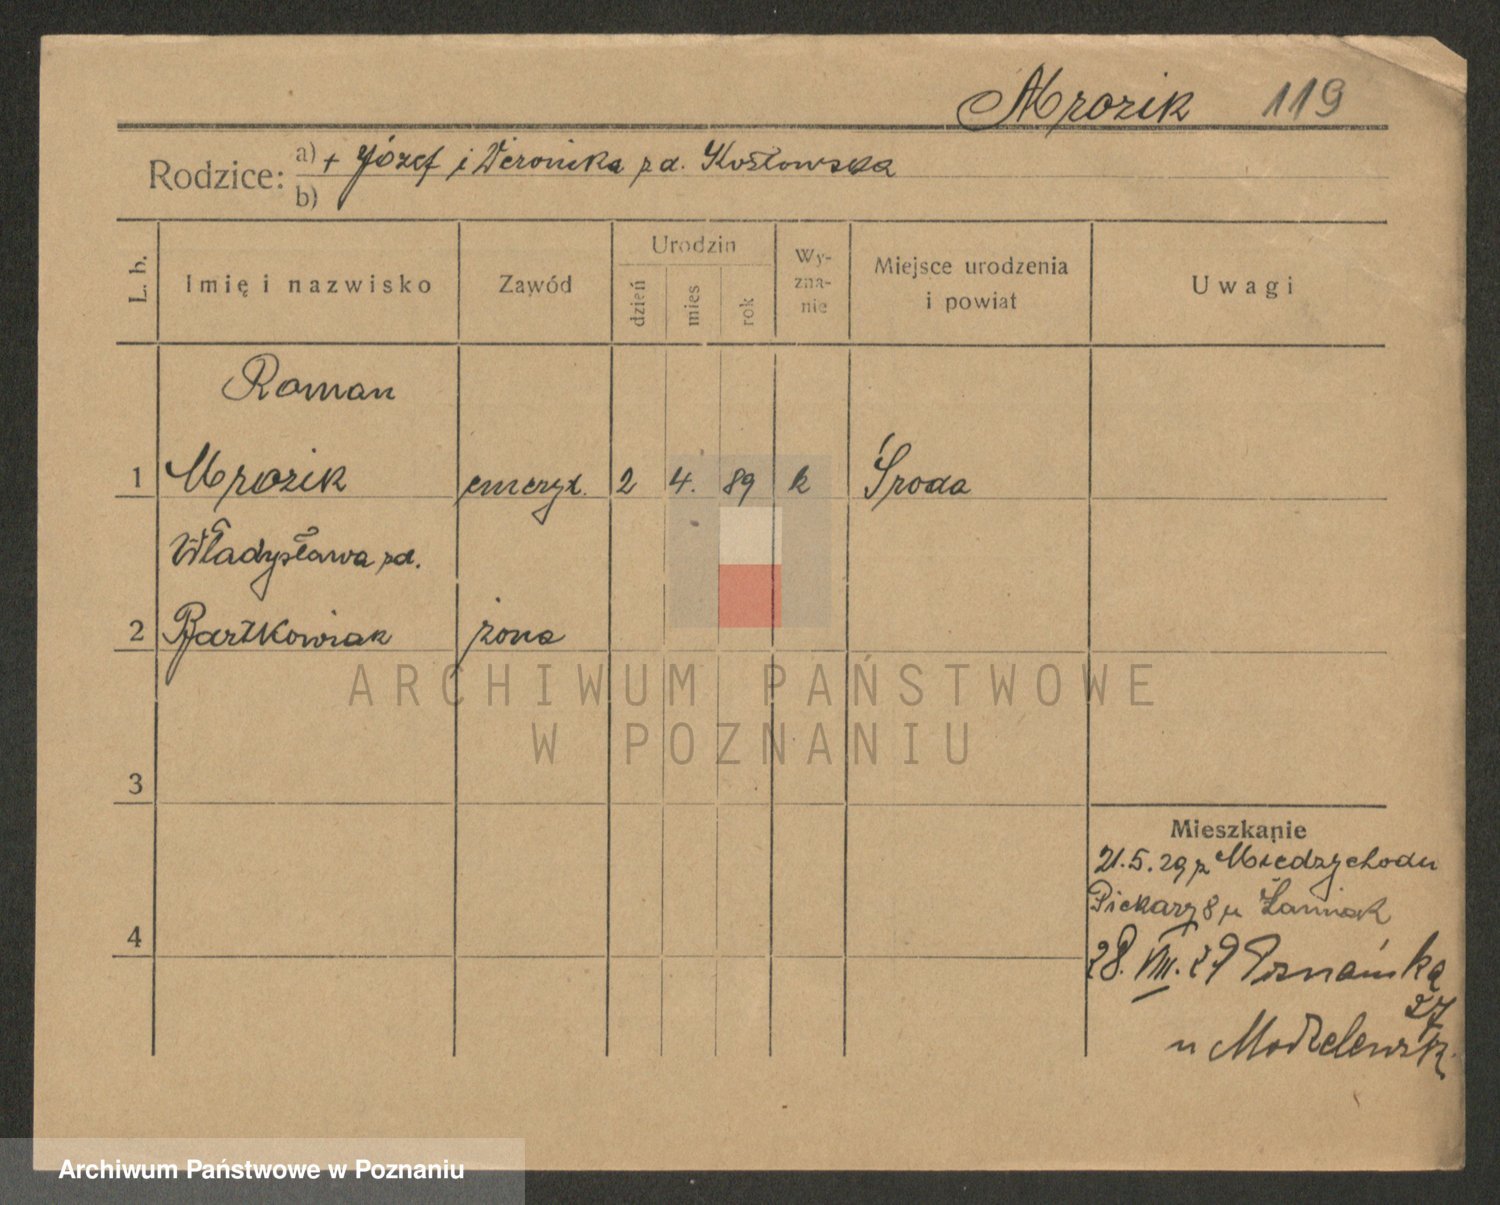 Mrozik 119
Rodzice: a) + Józef i Weronika zd. Kozłowska
b)
L. b.
Imię i nazwisko
Zawód
Urodzin
dzień
mies
rok
Wy-
zna-
nie
Miejsce urodzenia
i powiat
Uwagi
Roman
1 Mrozik emeryt. 2 4. 89 k Środa
Władysława zd.
2 Bartkowiak żona
ARCHIWUM PAŃSTWOWE
W POZNANIU
3
Mieszkanie
21.5.29 z Miedzychodu
Piekary 8 u
4
28. VIII. 29 Poznańska
27
u Modzelewsk.
Archiwum Państwowe w Poznaniu